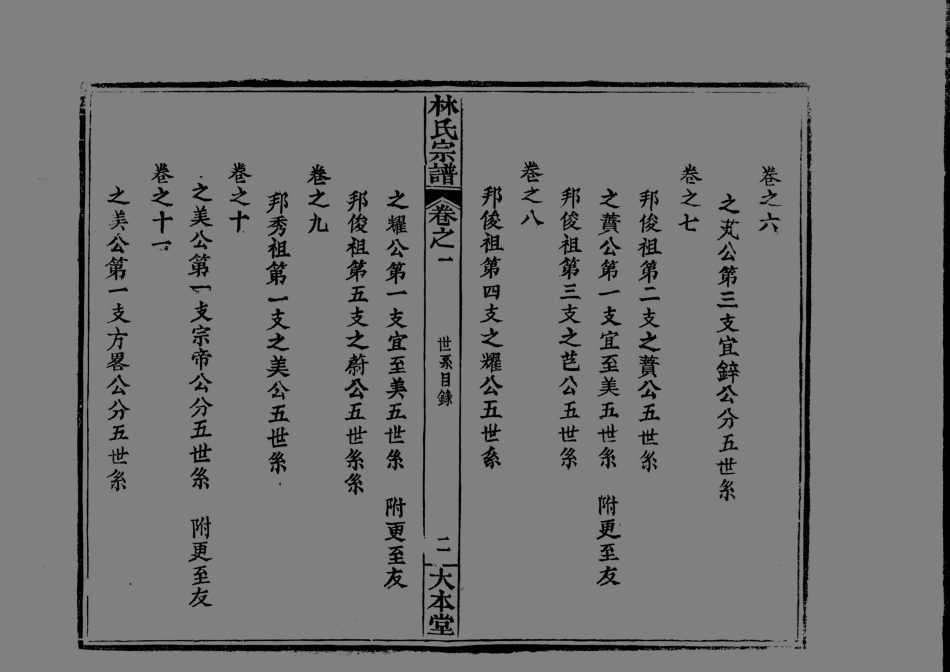 卷之六
之芄公第三支宜鋅公分五世系
卷之七
邦俊祖第二支之蕡公五世系
之蕡公第一支宜至美五世系 附更至友
邦俊祖第三支之芑公五世系
卷之八
邦俊祖第四支之耀公五世系
林氏宗譜 卷之一 世系目錄 二 大本堂
之耀公第一支宜至美五世系 附更至友
邦俊祖第五支之蔚公五世系系
卷之九
邦秀祖第一支之美公五世系
卷之十
之美公第一支宗帝公分五世系 附更至友
卷之十一
之美公第一支方畧公分五世系